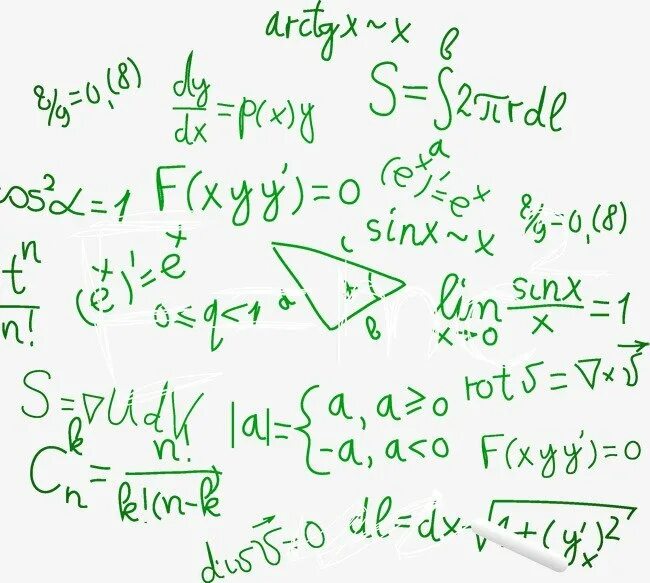 arctgx ~ x
8/9=0,(8)
dy/dx = p(x)y
S=∫2πrdl
b
a
cos²α=1
F(x y y')=0
(eˣ)'=eˣ
sinx ~ x
8/9=0,(8)
tⁿ/n!
(eˣ)'=eˣ
0≤q<1
a
c
b
lim x→0 sinx/x = 1
S=∇UdV
|a|={a, a≥0
-a, a<0
rot v = ∇×v⃗
Cₙᵏ = n!/k!(n-k)
F(x y y')=0
div v⃗=0
dl=dx √1+(y'ₓ)²